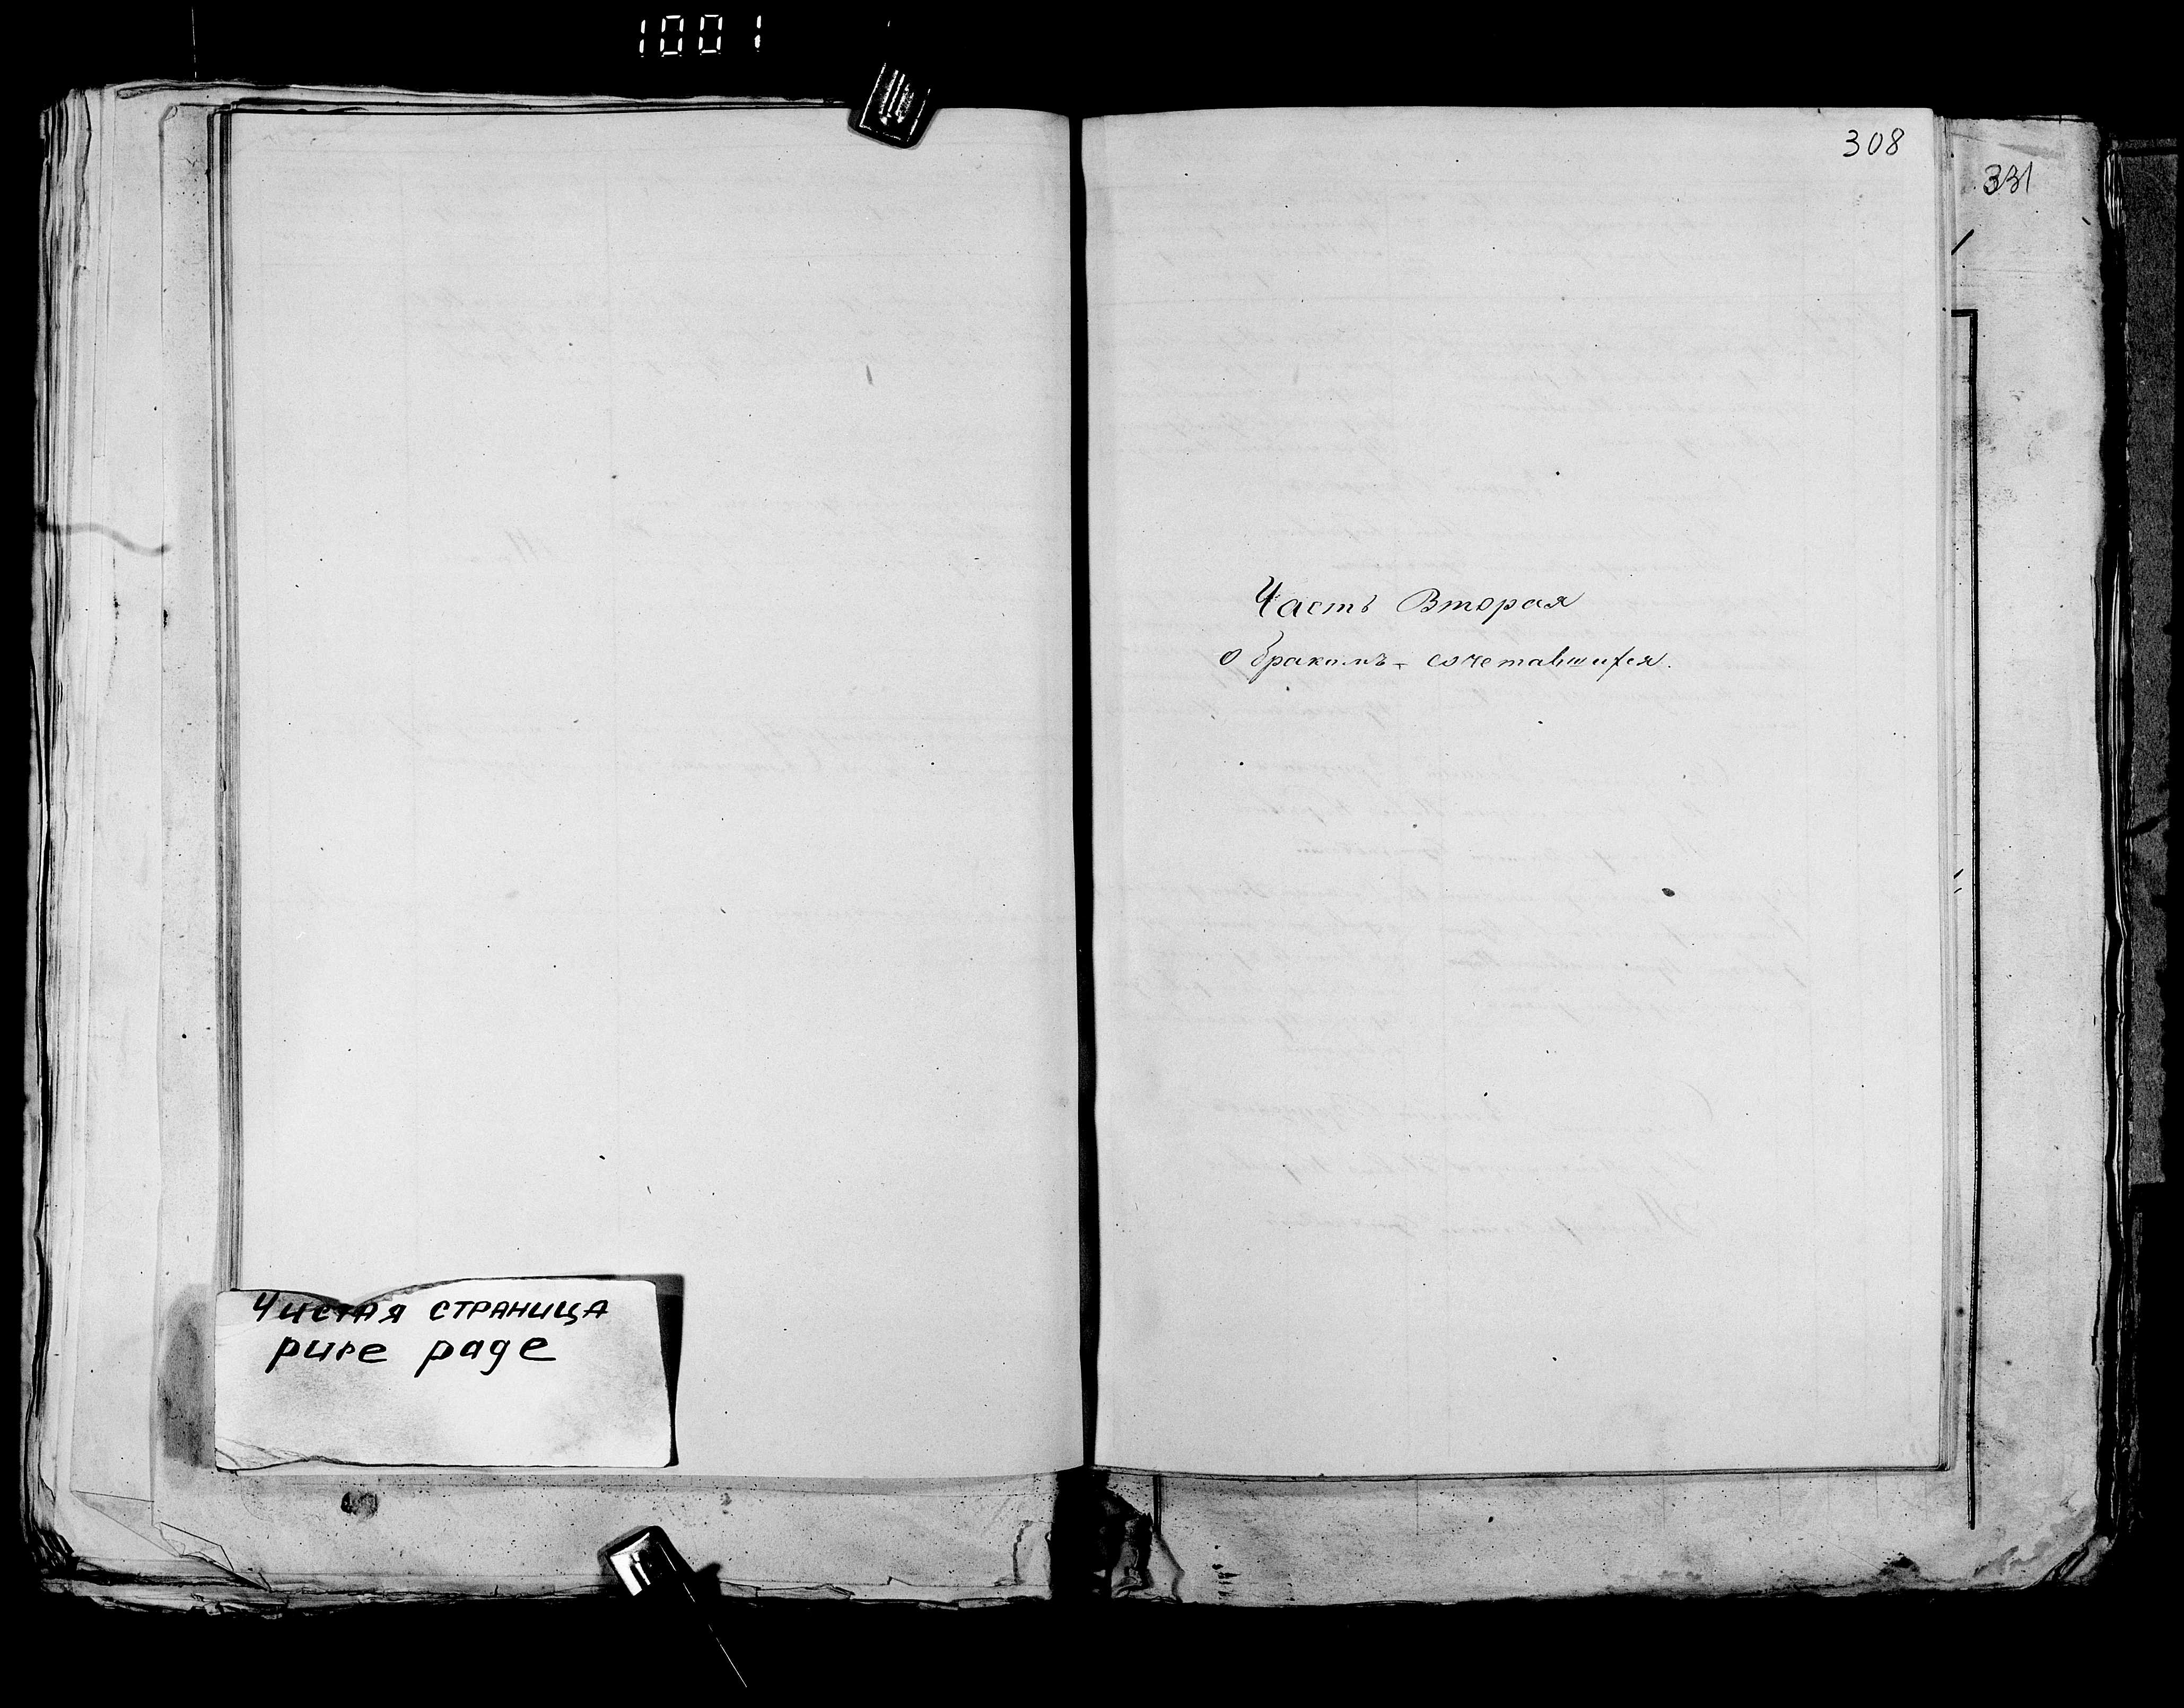 1001
308
331
Часть Вторая
о бракомъ - сочетавшихся.
Чистая СТРАНИЦА
pure page